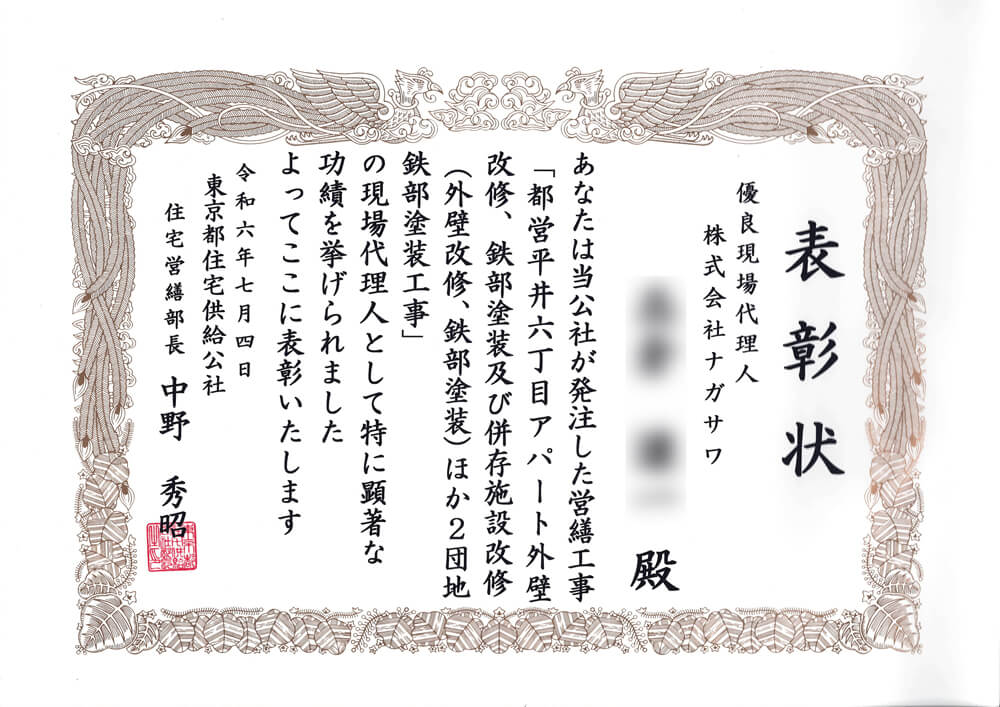 表彰状
優良現場代理人
株式会社ナガサワ
殿
あなたは当公社が発注した営繕工事
「都営平井六丁目アパート外壁
改修、鉄部塗装及び併存施設改修
(外壁改修、鉄部塗装)ほか2団地
鉄部塗装工事」
の現場代理人として特に顕著な
功績を挙げられました
よってここに表彰いたします
令和六年七月四日
東京都住宅供給公社
住宅営繕部長 中野 秀昭